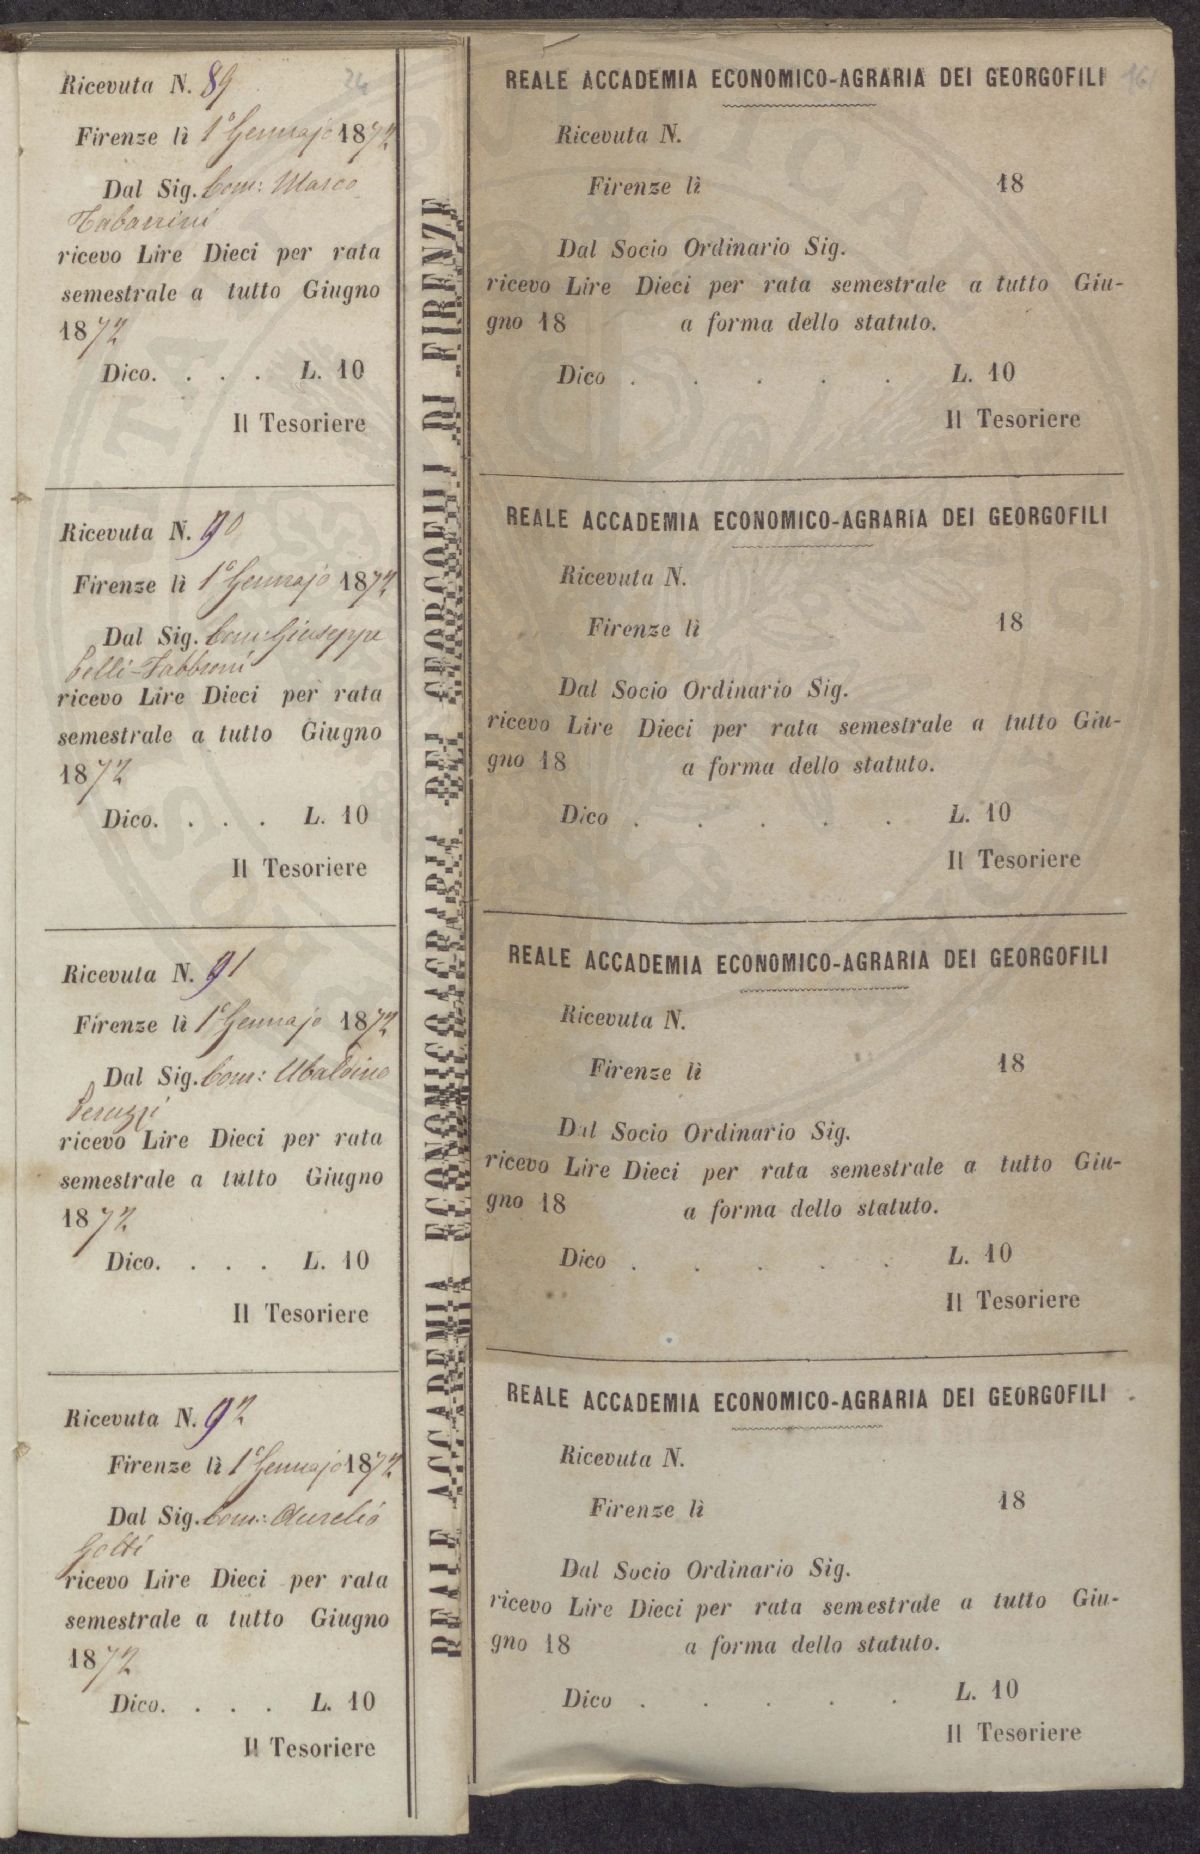 Ricevuta N. 89
Firenze lì 1° Gennajo 1872
Dal Sig. Com: Marco
Tabarrini
ricevo Lire Dieci per rata
semestrale a tutto Giugno
1872
Dico. . . . L. 10
Il Tesoriere
Ricevuta N. 90
Firenze lì 1° Gennajo 1872
Dal Sig. Com: Giuseppe
Pelli-Fabbroni
ricevo Lire Dieci per rata
semestrale a tutto Giugno
1872
Dico. . . . L. 10
Il Tesoriere
Ricevuta N. 91
Firenze lì 1° Gennajo 1872
Dal Sig. Com: Ubaldino
Peruzzi
ricevo Lire Dieci per rata
semestrale a tutto Giugno
1872
Dico. . . . L. 10
Il Tesoriere
Ricevuta N. 92
Firenze lì 1° Gennajo 1872
Dal Sig. Com: Aurelio
Gotti
ricevo Lire Dieci per rata
semestrale a tutto Giugno
1872
Dico. . . . L. 10
Il Tesoriere
REALE ACCADEMIA ECONOMICO-AGRARIA DEI GEORGOFILI DI FIRENZE
REALE ACCADEMIA ECONOMICO-AGRARIA DEI GEORGOFILI
Ricevuta N.
Firenze lì 18
Dal Socio Ordinario Sig.
ricevo Lire Dieci per rata semestrale a tutto Giu-
gno 18 a forma dello statuto.
Dico . . . . . L. 10
Il Tesoriere
REALE ACCADEMIA ECONOMICO-AGRARIA DEI GEORGOFILI
Ricevuta N.
Firenze lì 18
Dal Socio Ordinario Sig.
ricevo Lire Dieci per rata semestrale a tutto Giu-
gno 18 a forma dello statuto.
Dico . . . . . L. 10
Il Tesoriere
REALE ACCADEMIA ECONOMICO-AGRARIA DEI GEORGOFILI
Ricevuta N.
Firenze lì 18
Dal Socio Ordinario Sig.
ricevo Lire Dieci per rata semestrale a tutto Giu-
gno 18 a forma dello statuto.
Dico . . . . . L. 10
Il Tesoriere
REALE ACCADEMIA ECONOMICO-AGRARIA DEI GEORGOFILI
Ricevuta N.
Firenze lì 18
Dal Socio Ordinario Sig.
ricevo Lire Dieci per rata semestrale a tutto Giu-
gno 18 a forma dello statuto.
Dico . . . . . L. 10
Il Tesoriere